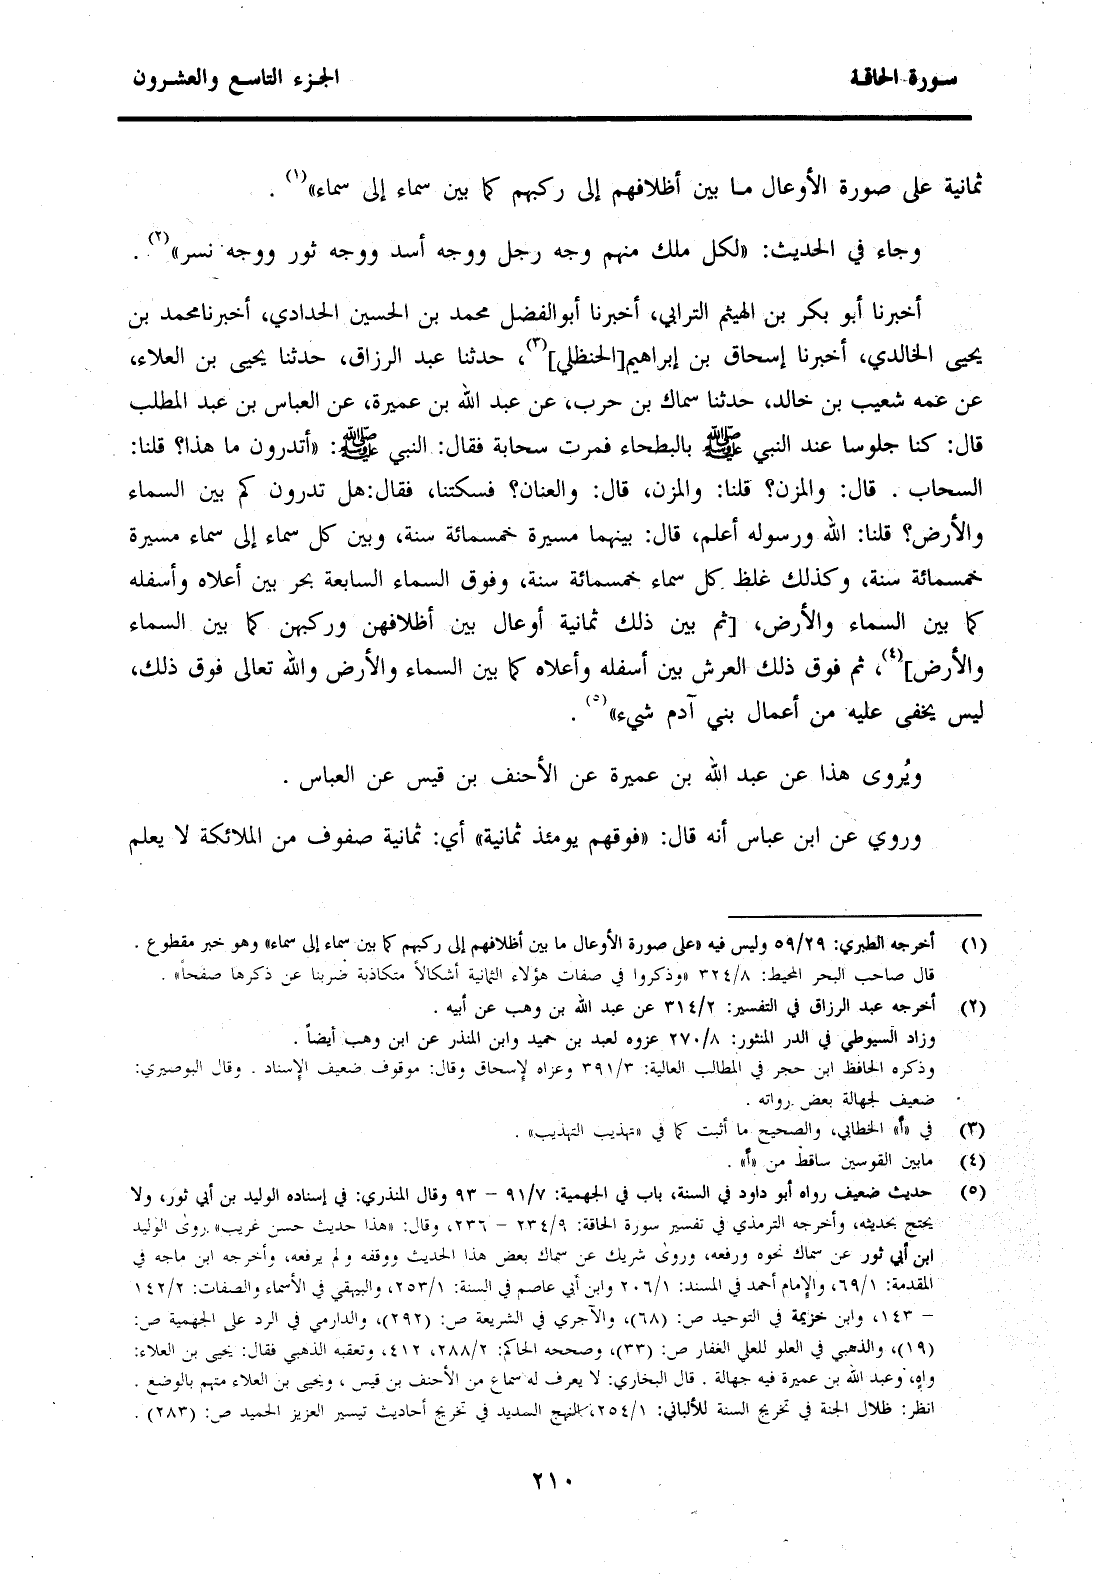 سورة الحاقة
الجزء التاسع والعشرون
ثمانية على صورة الأوعال ما بين أظلافهم إلى ركبهم كما بين سماء إلى سماء»(١) .
وجاء في الحديث: «لكل ملك منهم وجه رجل ووجه أسد ووجه ثور ووجه نسر»(٢) .
أخبرنا أبو بكر بن الهيثم الترابي، أخبرنا أبوالفضل محمد بن الحسين الحدادي، أخبرنامحمد بن
يحيى الخالدي، أخبرنا إسحاق بن إبراهيم[الحنظلي](٣)، حدثنا عبد الرزاق، حدثنا يحيى بن العلاء،
عن عمه شعيب بن خالد، حدثنا سماك بن حرب، عن عبد الله بن عميرة، عن العباس بن عبد المطلب
قال: كنا جلوسا عند النبي ﷺ بالبطحاء فمرت سحابة فقال: النبي ﷺ: «أتدرون ما هذا؟ قلنا:
السحاب . قال: والمزن؟ قلنا: والمزن، قال: والعنان؟ فسكتنا، فقال:هل تدرون كم بين السماء
والأرض؟ قلنا: الله ورسوله أعلم، قال: بينهما مسيرة خمسمائة سنة، وبين كل سماء إلى سماء مسيرة
خمسمائة سنة، وكذلك غلظ كل سماء خمسمائة سنة، وفوق السماء السابعة بحر بين أعلاه وأسفله
كما بين السماء والأرض، [ثم بين ذلك ثمانية أوعال بين أظلافهن وركبهن كما بين السماء
والأرض](٤)، ثم فوق ذلك العرش بين أسفله وأعلاه كما بين السماء والأرض والله تعالى فوق ذلك،
ليس يخفى عليه من أعمال بني آدم شيء»(٥) .
ويُروى هذا عن عبد الله بن عميرة عن الأحنف بن قيس عن العباس .
وروي عن ابن عباس أنه قال: «فوقهم يومئذ ثمانية» أي: ثمانية صفوف من الملائكة لا يعلم
(١) أخرجه الطبري: ٥٩/٢٩ وليس فيه «على صورة الأوعال ما بين أظلافهم إلى ركبهم كما بين سماء إلى سماء» وهو خبر مقطوع .
قال صاحب البحر المحيط: ٣٢٤/٨ «وذكروا في صفات هؤلاء الثمانية أشكالاً متكاذبة ضربنا عن ذكرها صفحاً» .
(٢) أخرجه عبد الرزاق في التفسير: ٣١٤/٢ عن عبد الله بن وهب عن أبيه .
وزاد السيوطي في الدر المنثور: ٢٧٠/٨ عزوه لعبد بن حميد وابن المنذر عن ابن وهب أيضاً .
وذكره الحافظ ابن حجر في المطالب العالية: ٣٩١/٣ وعزاه لإسحاق وقال: موقوف ضعيف الإسناد . وقال البوصيري:
ضعيف لجهالة بعض رواته .
(٣) في «أ» الخطابي، والصحيح ما أثبت كما في «تهذيب التهذيب» .
(٤) مابين القوسين ساقط من «أ» .
(٥) حديث ضعيف رواه أبو داود في السنة، باب في الجهمية: ٩١/٧ – ٩٣ وقال المنذري: في إسناده الوليد بن أبي ثور، ولا
يحتج بحديثه، وأخرجه الترمذي في تفسير سورة الحاقة: ٢٣٤/٩ – ٢٣٦، وقال: «هذا حديث حسن غريب» روى الوليد
ابن أبي ثور عن سماك نحوه ورفعه، وروى شريك عن سماك بعض هذا الحديث ووقفه ولم يرفعه، وأخرجه ابن ماجه في
المقدمة: ٦٩/١، والإمام أحمد في المسند: ٢٠٦/١ وابن أبي عاصم في السنة: ٢٥٣/١، والبيهقي في الأسماء والصفات: ١٤٢/٢
– ١٤٣، وابن خزيمة في التوحيد ص: (٦٨)، والآجري في الشريعة ص: (٢٩٢)، والدارمي في الرد على الجهمية ص:
(١٩)، والذهبي في العلو للعلي الغفار ص: (٣٣)، وصححه الحاكم: ٢٨٨/٢، ٤١٢، وتعقبه الذهبي فقال: يحيى بن العلاء:
واهٍ، وعبد الله بن عميرة فيه جهالة . قال البخاري: لا يعرف له سماع من الأحنف بن قيس ، ويحيى بن العلاء متهم بالوضع .
انظر: ظلال الجنة في تخريج السنة للألباني: ٢٥٤/١، النهج السديد في تخريج أحاديث تيسير العزيز الحميد ص: (٢٨٣) .
٢١٠